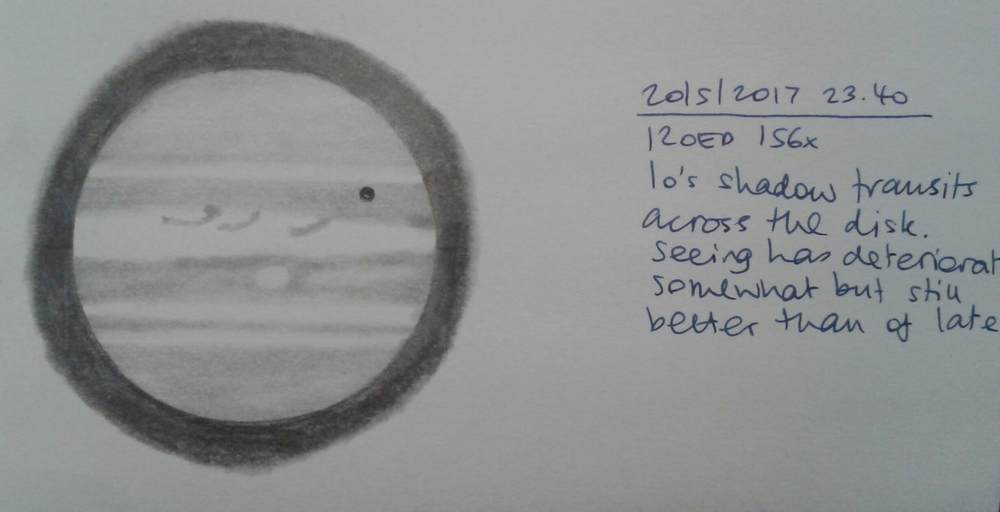 20/5/2017 23.40
120ED 156x
Io's shadow transits
across the disk.
Seeing has deteriorat
somewhat but still
better than of late